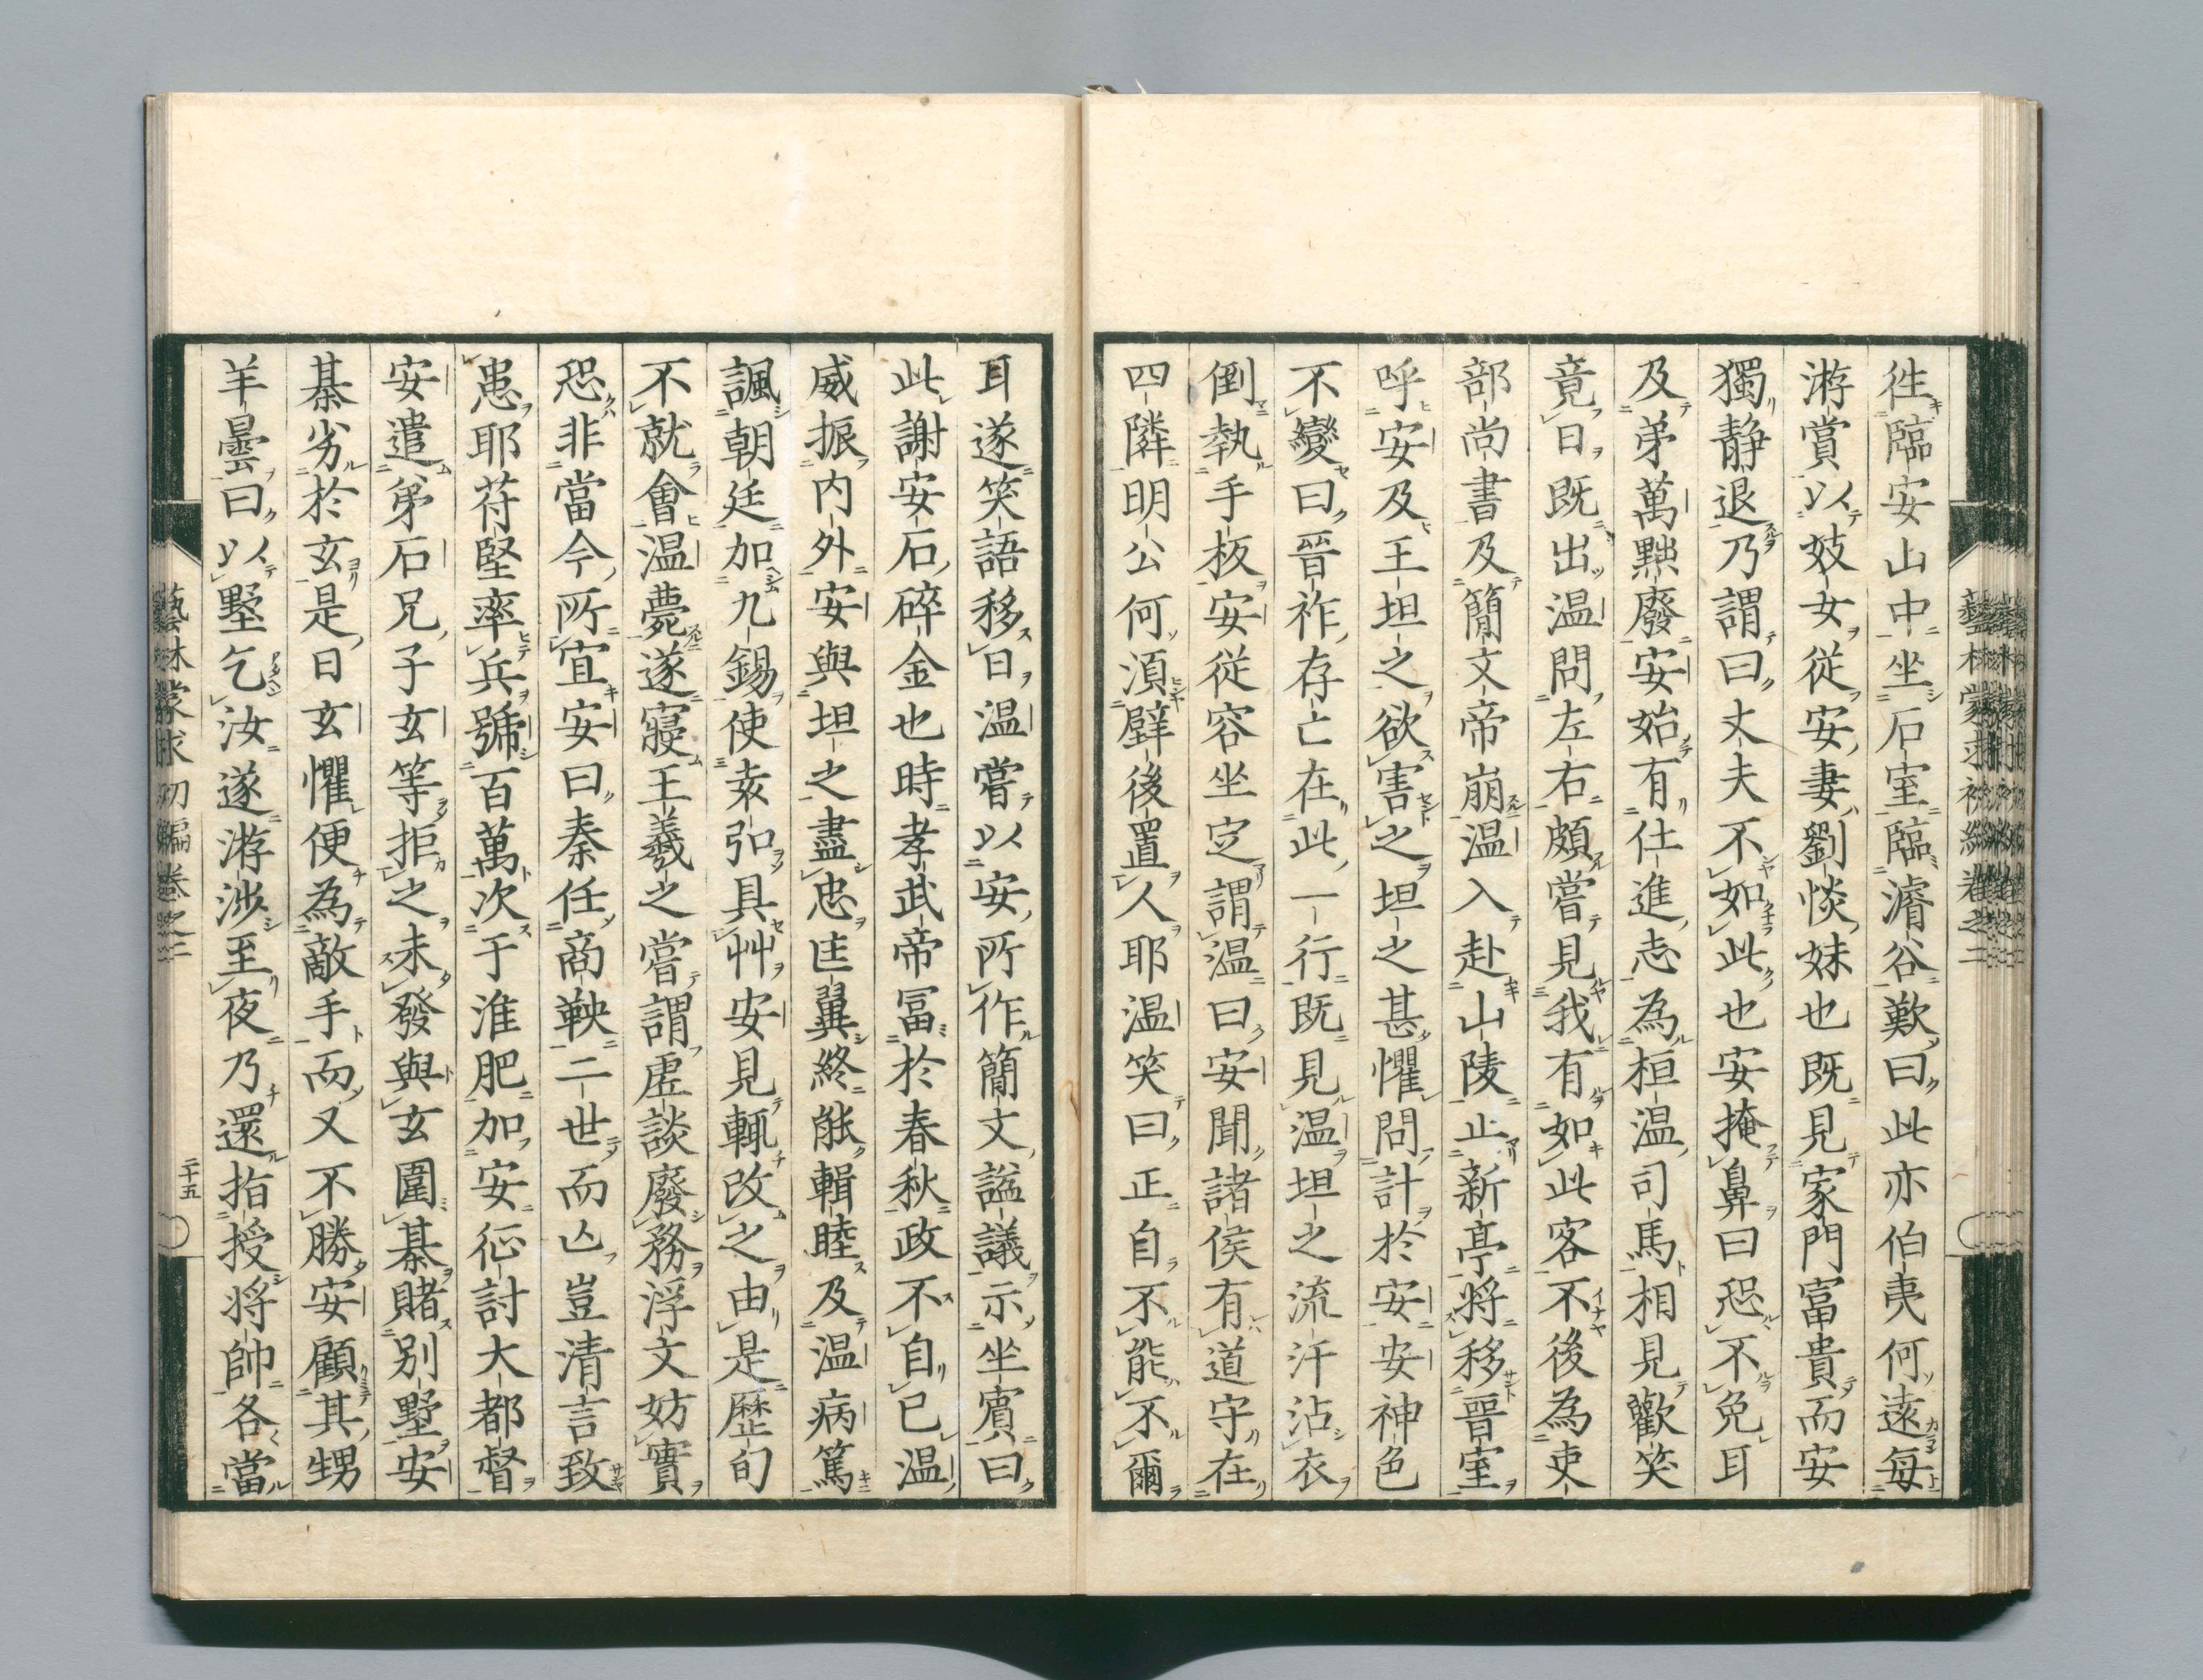 徃臨安山中坐石室臨濬谷歎曰此亦伯夷何遠每
游賞以妓女從安妻劉惔妹也既見家門富貴而安
獨静退乃謂曰丈夫不如此也安掩鼻曰恐不免耳
及弟萬黜廢安始有仕進志為桓温司馬相見歡笑
竟日既出温問左右頗嘗見我有如此客不後為吏
部尚書及簡文帝崩温入赴山陵止新亭將移晉室
呼安及王坦之欲害之坦之甚懼問計於安安神色
不變曰晉祚存亡在此一行既見温坦之流汗沾衣
倒執手板安從容坐定謂温曰安聞諸侯有道守在
四隣明公何湏壁後置人耶温笑曰正自不能不爾
耳遂笑語移日温嘗以安所作簡文謚議示坐賓曰
此謝安石碎金也時孝武帝冨於春秋政不自己温
威振内外安與坦之盡忠匡翼終能輯睦及温病篤
諷朝廷加九錫使袁弘具艸安見輒改之由是歷旬
不就會温薨遂寢王羲之嘗謂虗談廢務浮文妨實
恐非當今所宜安曰秦任商鞅二世而亾豈清言致
患耶苻堅率兵號百萬次于淮肥加安征討大都督
安遣弟石兄子玄等拒之未發與玄圍棊賭别墅安
棊劣於玄是日玄懼便為敵手而又不勝安顧其甥
羊曇曰以墅乞汝遂游涉至夜乃還指授將帥各當
藝林蒙求初編卷之二
二十五